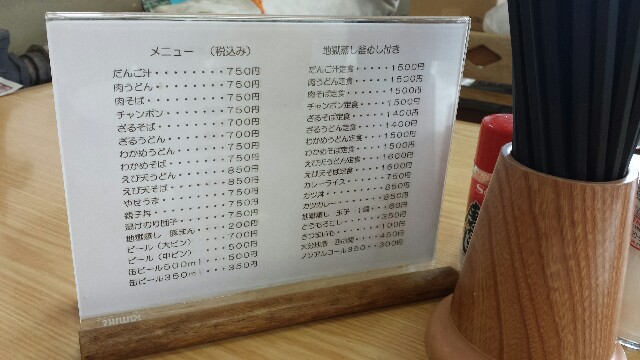 メニュー （税込み）
だんご汁・・・・・・・・750円
肉うどん・・・・・・・・750円
肉そば・・・・・・・・・750円
チャンポン・・・・・・・750円
ざるそば・・・・・・・・700円
ざるうどん・・・・・・・700円
わかめうどん・・・・・・750円
わかめそば・・・・・・・750円
えび天うどん・・・・・・850円
えび天そば・・・・・・・850円
やせうま・・・・・・・・750円
親子丼・・・・・・・・・750円
地獄蒸し 豚まん・・・・200円
ビール（大ビン）・・・・700円
ビール（中ビン）・・・・500円
缶ビール500ml・・・500円
缶ビール350ml・・・350円
地獄蒸し釜めし付き
だんご汁定食・・・・1500円
肉うどん定食・・・・1500円
肉そば定食・・・・・1500円
チャンポン定食・・・1500円
ざるそば定食・・・・1400円
ざるうどん定食・・・1400円
わかめうどん定食・・1500円
わかめそば定食・・・1500円
えび天うどん定食・・1600円
えび天そば定食・・・1600円
カレーライス・・・・750円
カツ丼・・・・・・・850円
カツカレー・・・・・850円
地獄蒸し 玉子 1個・・
とうもろこし・・・・350円
さつまいも・・・・・100円
ノンアルコール350・・・300円